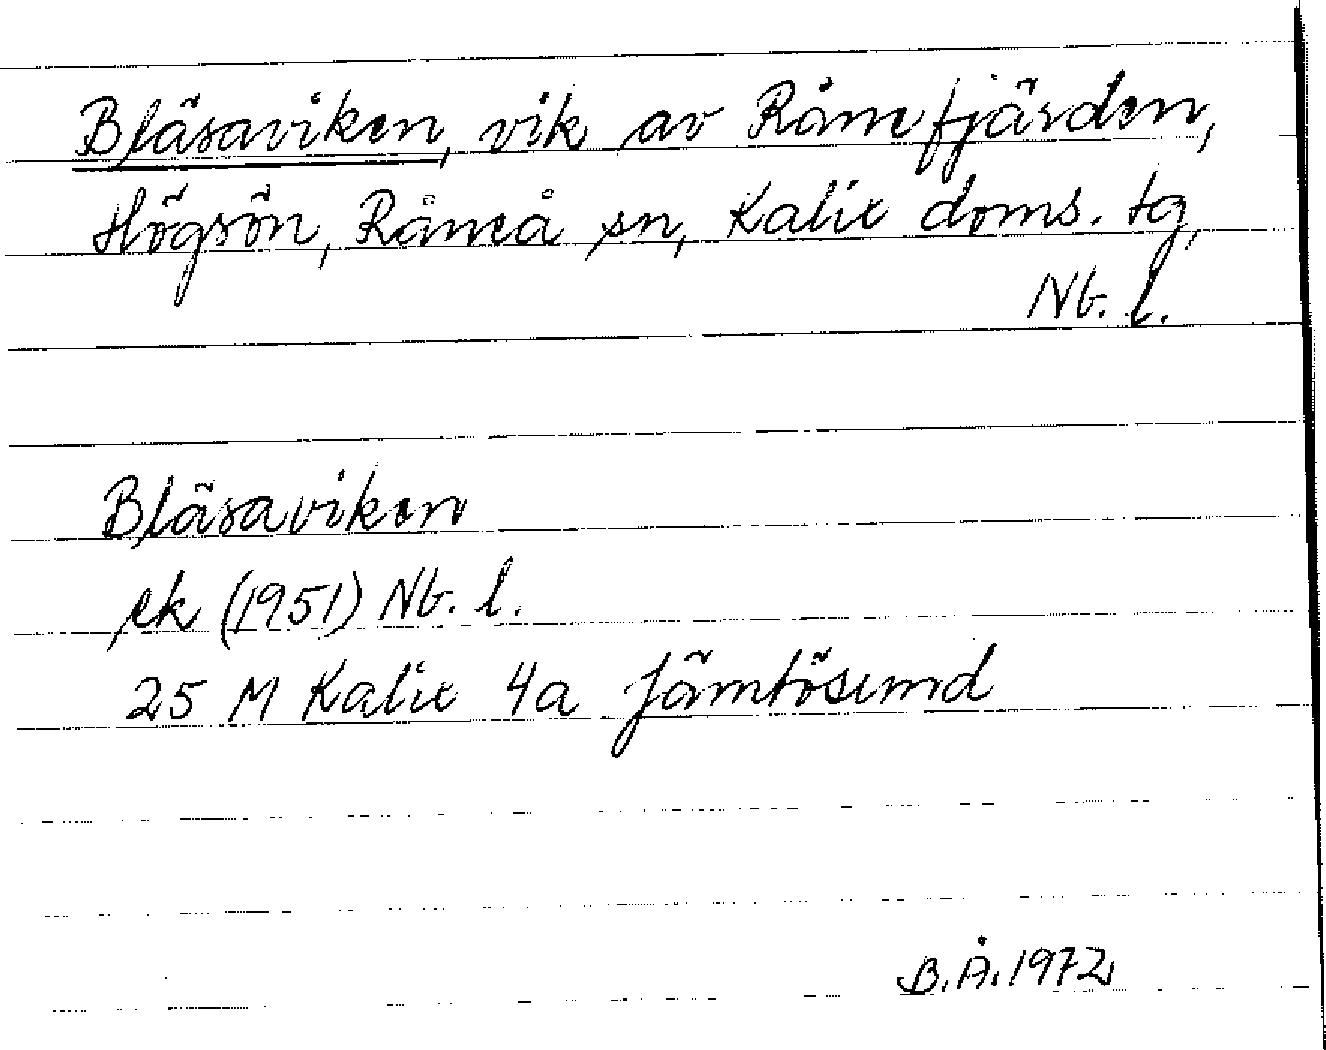 Bläsaviken, vik av Rånefjärden,
Högsön, Råneå sn, Kalix doms. tg,
Nb. l.
Bläsaviken
ek (1951) Nb. l.
25 M Kalix 4a Jämtösund
B.Å. 1972